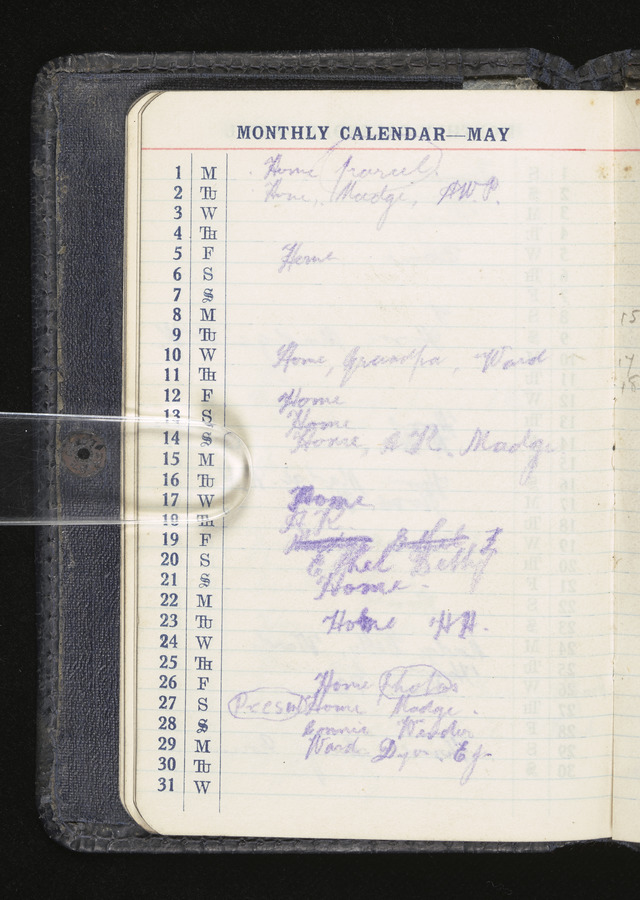 MONTHLY CALENDAR—MAY
1 M Home parcel
2 Tu Home, Madge, A.W.P.
3 W
4 Th
5 F Home
6 S
7 S
8 M
9 Tu
10 W Home, Grandpa, Ward
11 Th
12 F Home
13 S Home
14 S Home, A.K. Madge
15 M
16 Tu
17 W Home
18 Th A K
19 F
20 S Ethel Betty
21 S Home.
22 M
23 Tu Home HH.
24 W
25 Th
26 F Home Photos
27 S Home Madge.
28 S Connie
29 M Ward
30 Tu
31 W
15
17
18